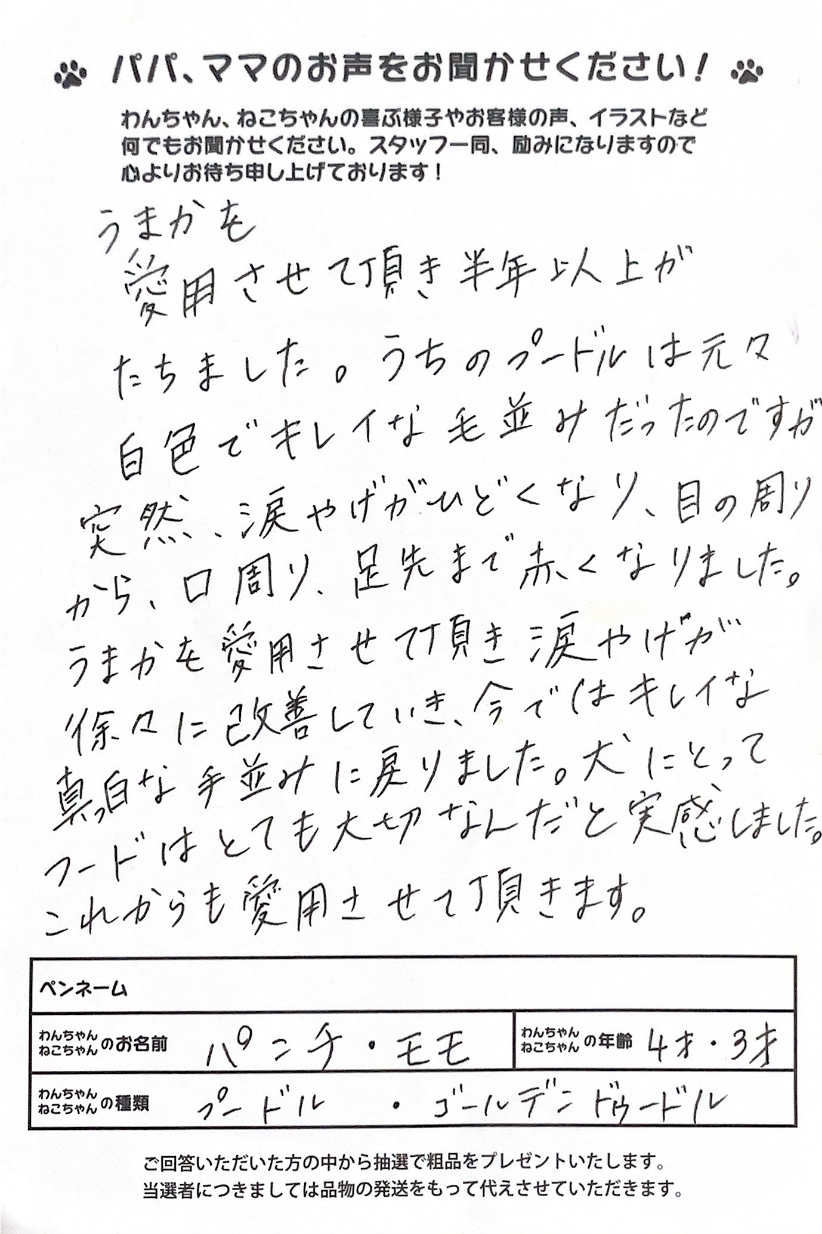 パパ、ママのお声をお聞かせください!
わんちゃん、ねこちゃんの喜ぶ様子やお客様の声、イラストなど
何でもお聞かせください。スタッフ一同、励みになりますので
心よりお待ち申し上げております!
うまかを
愛用させて頂き半年以上が
たちました。うちのプードルは元々
白色でキレイな毛並みだったのですが
突然、涙やけがひどくなり、目の周り
から、口周り、足先まで赤くなりました。
うまかを愛用させて頂き涙やけが
徐々に改善していき、今ではキレイな
真っ白な毛並みに戻りました。犬にとって
フードはとても大切なんだと実感しました。
これからも愛用させて頂きます。
ペンネーム
わんちゃん ねこちゃん のお名前 パンチ・モモ わんちゃん ねこちゃん の年齢 4才・3才
わんちゃん ねこちゃん の種類 プードル ・ゴールデンドゥードル
ご回答いただいた方の中から抽選で粗品をプレゼントいたします。
当選者につきましては品物の発送をもって代えさせていただきます。